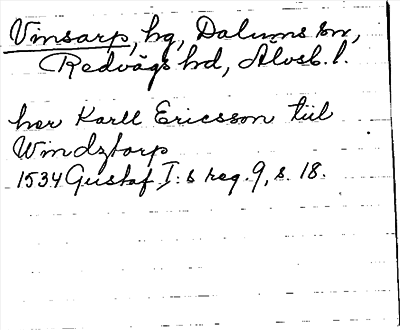 Vinsarp, hg, Dalums sn,
Redvägs hd, Älvsb. l.
her Karll Ericsson till
Windztorp
1534 Gustaf I:s reg. 9, s. 18.